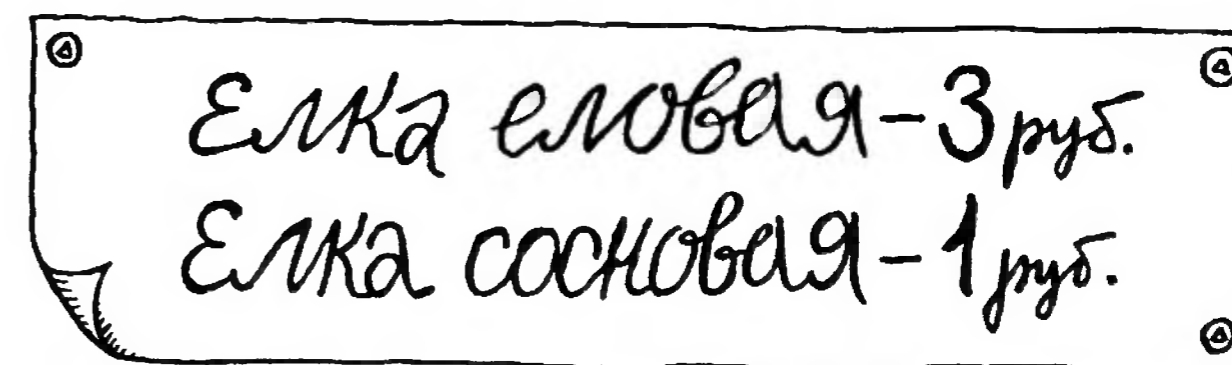 Елка еловая – 3 руб.
Елка сосновая – 1 руб.